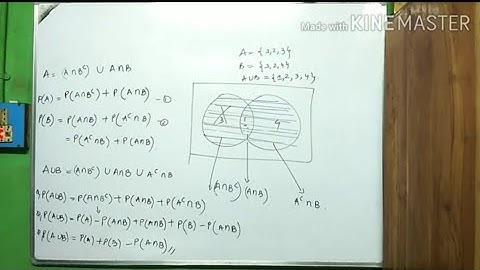 Made with KINEMASTER
A = (A∩Bᶜ) ∪ A∩B
P(A) = P(A∩Bᶜ) + P(A∩B) - ①
P(B) = P(A∩B) + P(Aᶜ∩B) - ②
= P(Aᶜ∩B) + P(A∩B)
A∪B = (A∩Bᶜ) ∪ A∩B ∪ Aᶜ∩B
P(A∪B) = P(A∩Bᶜ) + P(A∩B) + P(Aᶜ∩B)
P(A∪B) = P(A) - P(A∩B) + P(A∩B) + P(B) - P(A∩B)
P(A∪B) = P(A) + P(B) - P(A∩B)
A = {1,2,3}
B = {1,2,4}
A∪B = {1,2,3,4}
3 1 4
(A∩Bᶜ) (A∩B) Aᶜ∩B